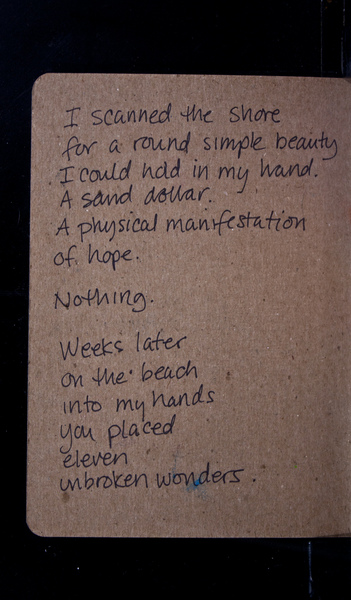 I scanned the shore
for a round simple beauty
I could hold in my hand.
A sand dollar.
A physical manifestation
of hope.
Nothing.
Weeks later
on the beach
into my hands
you placed
eleven
unbroken wonders.